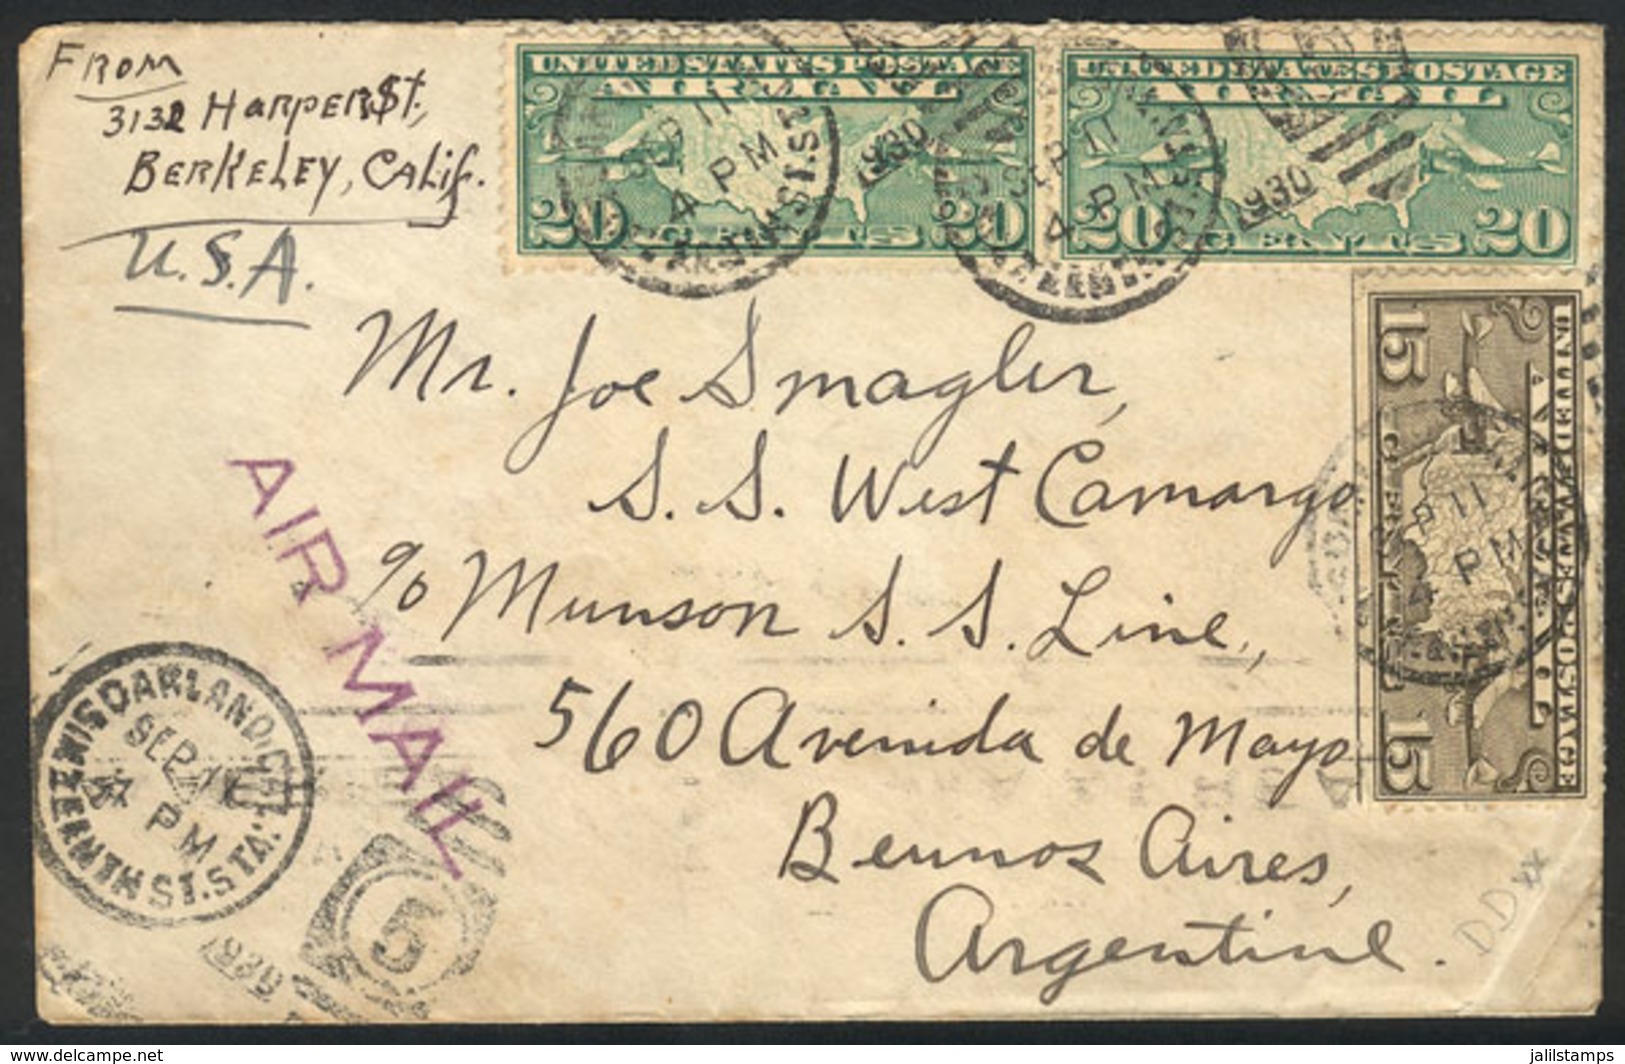 From
3132 Harper St.,
Berkeley, Calif.
U.S.A.
UNITED STATES POSTAGE
AIR MAIL
20 CENTS 20
SEP 11
4 PM
1930
UNITED STATES POSTAGE
AIR MAIL
20 CENTS 20
SEP 11
4 PM
1930
UNITED STATES POSTAGE
AIR MAIL
15 CENTS 15
P 11
PM
Mr. Joe Smagler,
S. S. West Camargo
c/o Munson S. S. Line,
560 Avenida de Mayo
Beunos Aires,
Argentine.
AIR MAIL
OAKLAND, CAL.
SEP 11
4 PM
SEVENTEENTH ST. STA.
5
DDxx
Postales Internacionales
jalilstamps